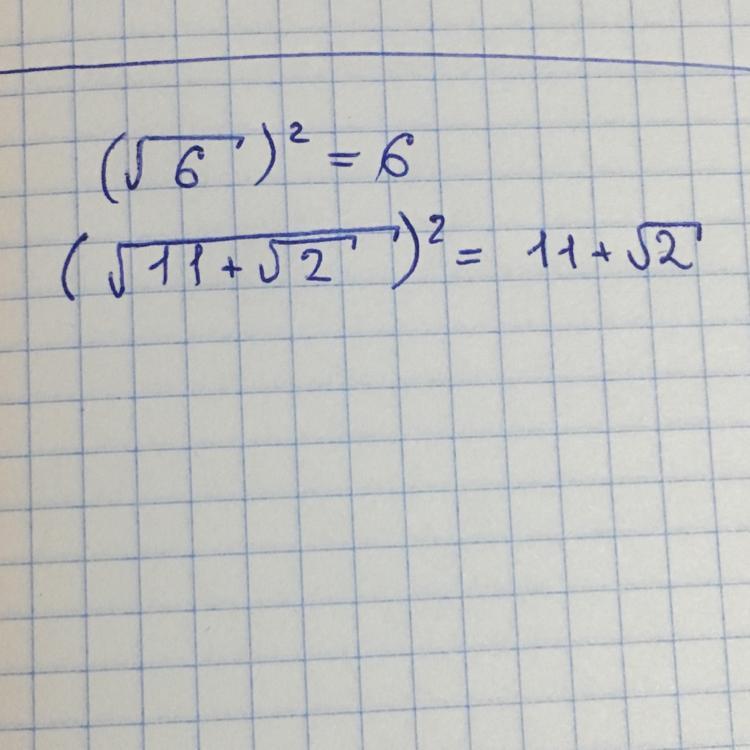 (√6)² = 6
(√(11+√2))² = 11+√2